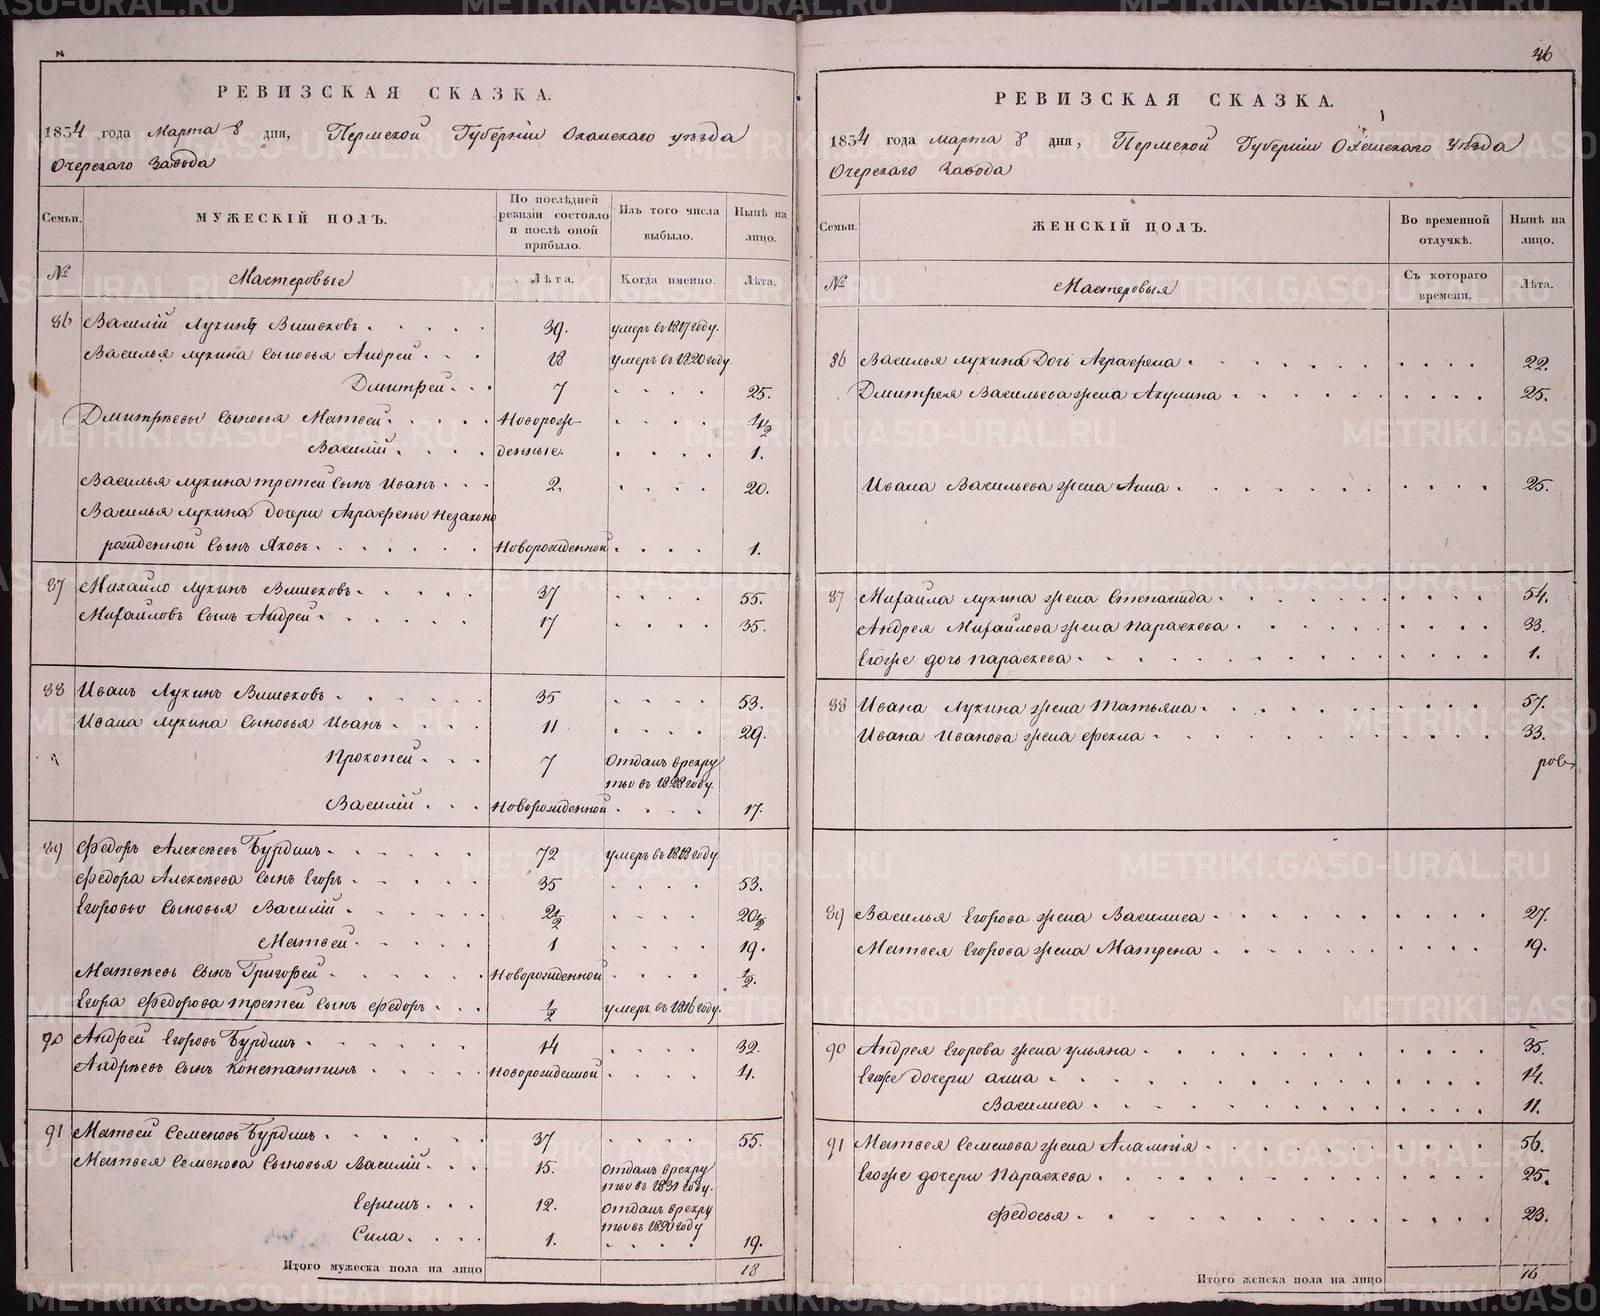 РЕВИЗСКАЯ СКАЗКА.
1834 года Марта 8 дня, Пермской Губерніи Оханскаго уѣзда
Очерскаго Завода
Семьи. МУЖЕСКІЙ ПОЛЪ. По послѣдней ревизіи состояло и послѣ оной прибыло. Изъ того числа выбыло. Нынѣ на лицо.
№ Мастеровые Лѣта. Когда именно. Лѣта.
86 Василій Лукинъ 39. умеръ въ 1817 году.
Василья Лукина сыновья Андрей 18 умеръ въ 1820 году
Дмитрей 7 25.
Дмитрѣевы сыновья Матвей Новорож- 4½
Василій денные. 1.
Василья Лукина третей сынъ Иванъ 2. 20.
Василья Лукина дочери Аграфены незаконо
рожденной сынъ Яковъ Новорожденной 1.
87 Михайло Лукинъ 37 55.
Михайловъ сынъ Андрей 17 35.
88 Иванъ Лукинъ 35 53.
Ивана Лукина сыновья Иванъ 11 29.
Прокопей 7 Отданъ в рекру
ты въ 1828 году.
Василій Новорожденной 17.
89 Федоръ Алексѣевъ Бурдинъ 72 умеръ въ 1818 году
Федора Алексѣева сынъ Егоръ 35 53.
Егоровы сыновья Василій 2½ 20½
Матвей 1 19.
Матвѣевъ сынъ Григорей Новорожденной ½.
Егора Федорова третей сынъ Федоръ ½ умеръ въ 1816 году.
90 Андрей Егоровъ Бурдинъ 14 32.
Андрѣевъ сынъ Константинъ Новорожденной 4.
91 Матвей Семеновъ Бурдинъ 37 55.
Матвея Семенова сыновья Василій 15. Отданъ в рекру
ты въ 1831 году.
Ефимъ 12. Отданъ в рекру
ты въ 1830 году
Сила 1. 19.
Итого мужеска пола на лицо 18
46
РЕВИЗСКАЯ СКАЗКА.
1834 года марта 8 дня, Пермской Губерніи Оханскаго уѣзда
Очерскаго Завода
Семьи. ЖЕНСКІЙ ПОЛЪ. Во временной отлучкѣ. Нынѣ на лицо.
№ Мастеровыя Съ котораго времени. Лѣта.
86 Василья Лукина Дочь Аграфена 22.
Дмитрея Васильева жена Акулина 25.
Ивана Васильева жена Анна 25.
87 Михайла Лукина жена Степанида 54.
Андрея Михайлова жена Параскева 33.
Егоже дочь Параскева 1.
88 Ивана Лукина жена Татьяна 57.
Ивана Иванова жена Фекла 33.
89 Василья Егорова жена Василиса 27.
Матвея Егорова жена Матрена 19.
90 Андрея Егорова жена Ульяна 35.
Егоже дочери Анна 14.
Василиса 11.
91 Матвея Семенова жена Алампія 56.
Егоже дочери Параскева 25.
Федосья 23.
Итого женска пола на лицо 16
METRIKI.GASO-URAL.RU